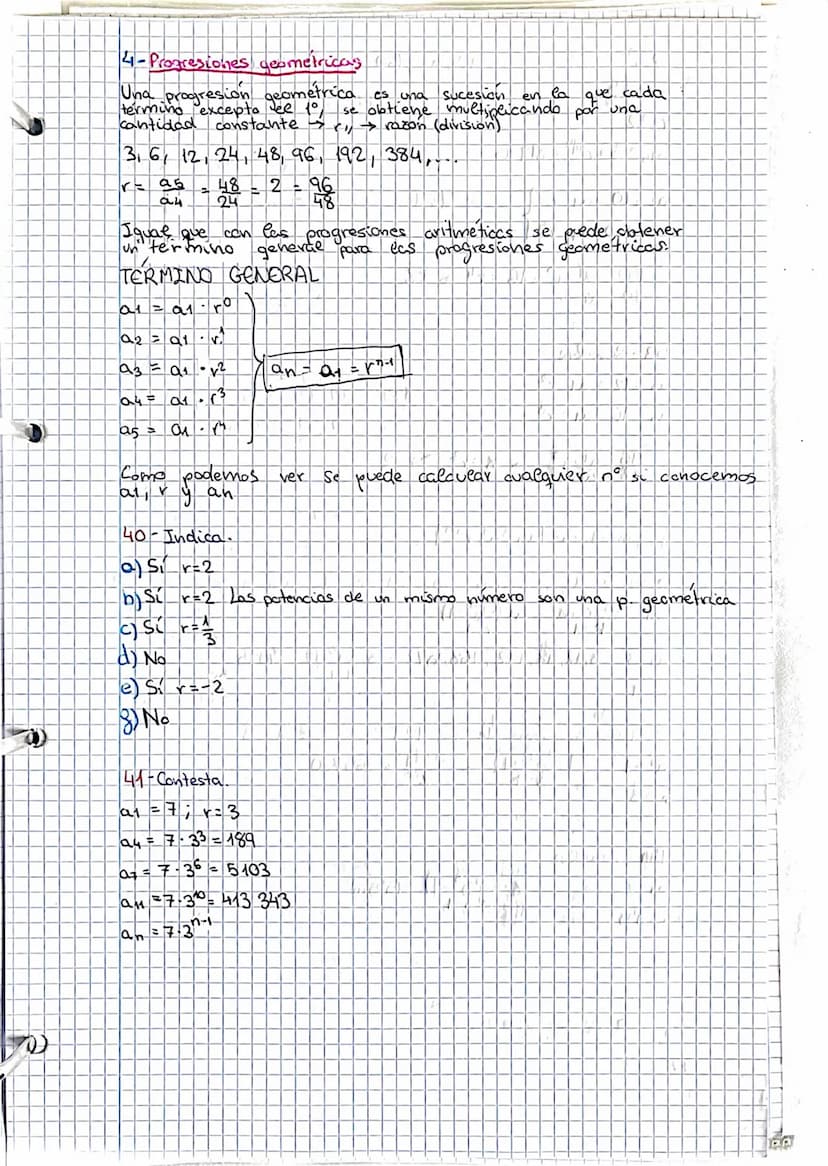 4-Progresiones geométricas
Una progresión geométrica es una sucesión en la que cada
término excepto el 1º, se obtiene multiplicando por una
cantidad constante → r, → razón (división)
3, 6, 12, 24, 48, 96, 192, 384,...
r = a5/a4 = 48/24 = 2 = 96/48
Igual que con las progresiones aritméticas se puede obtener
un término general para las progresiones geometricas.
TÉRMINO GENERAL
a1 = a1 · r⁰
a2 = a1 · r¹
a3 = a1 · r²
an = a1 = rⁿ⁻¹
a4 = a1 · r³
a5 = a1 · r⁴
Como podemos ver se puede calcular cualquier nº si conocemos
a1, r y an
40-Indica.
a) Sí r=2
b) Sí r=2 Las potencias de un mismo número son una p. geométrica
c) Sí r=1/3
d) No
e) Sí r=-2
f) No
41-Contesta.
a1 = 7; r=3
a4 = 7·3³ = 189
a7 = 7·3⁶ = 5103
a11 = 7·3¹⁰ = 413 343
an = 7·3ⁿ⁻¹